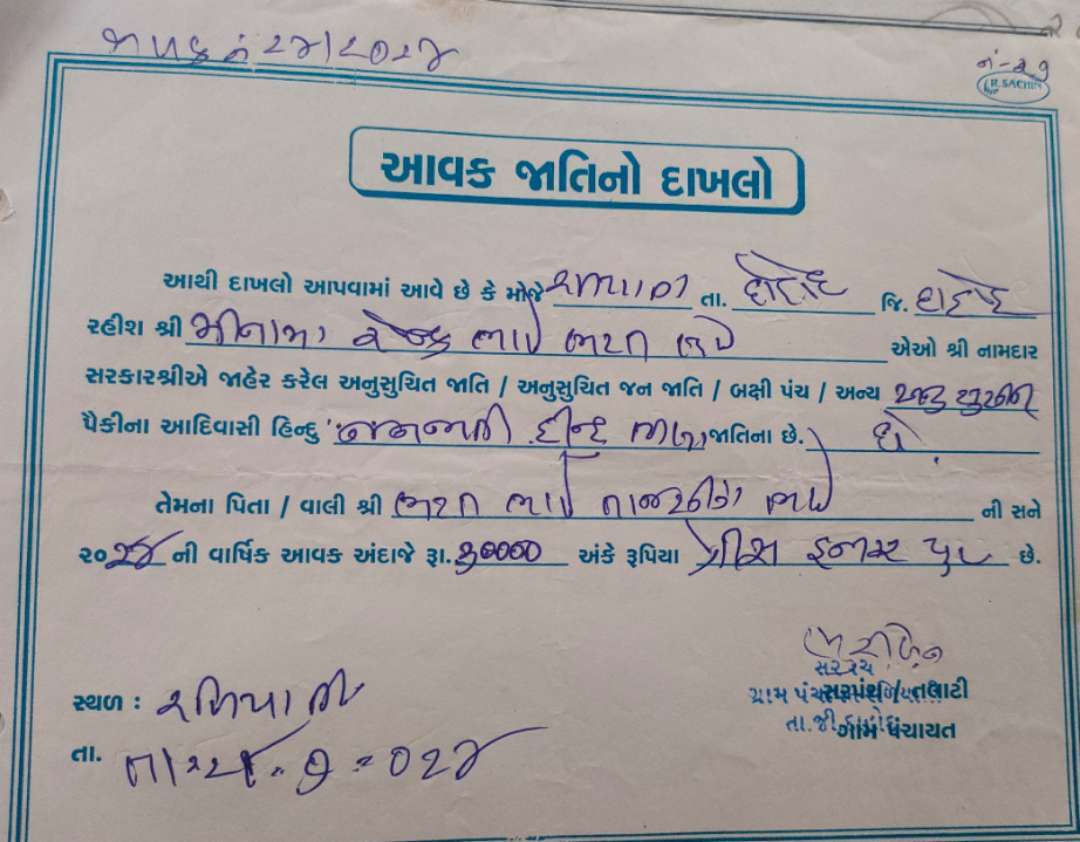 જાપક નં ૨૪/૨૦૨૪
નં-૨૭
R. SACHIN
આવક જાતિનો દાખલો
આથી દાખલો આપવામાં આવે છે કે મોજે તા. દાહોદ જિ. દાહોદ
રહીશ શ્રી મીનામા ભાઈ ભરત ભાઈ એઓ શ્રી નામદાર
સરકારશ્રીએ જાહેર કરેલ અનુસુચિત જાતિ / અનુસુચિત જન જાતિ / બક્ષી પંચ / અન્ય
પૈકીના આદિવાસી હિન્દુ જાતિના છે.
તેમના પિતા / વાલી શ્રી ભરત ભાઈ ભાઈ ની સને
૨૦૨૪ ની વાર્ષિક આવક અંદાજે રૂા. ૩૦૦૦૦ અંકે રૂપિયા ત્રીસ હજાર પુરા છે.
સરપંચ
ગ્રામ પંચાયત
સરપંચ / તલાટી
તા.જી. દાહોદ
ગ્રામ પંચાયત
સ્થળ : રળિયાતી
તા.